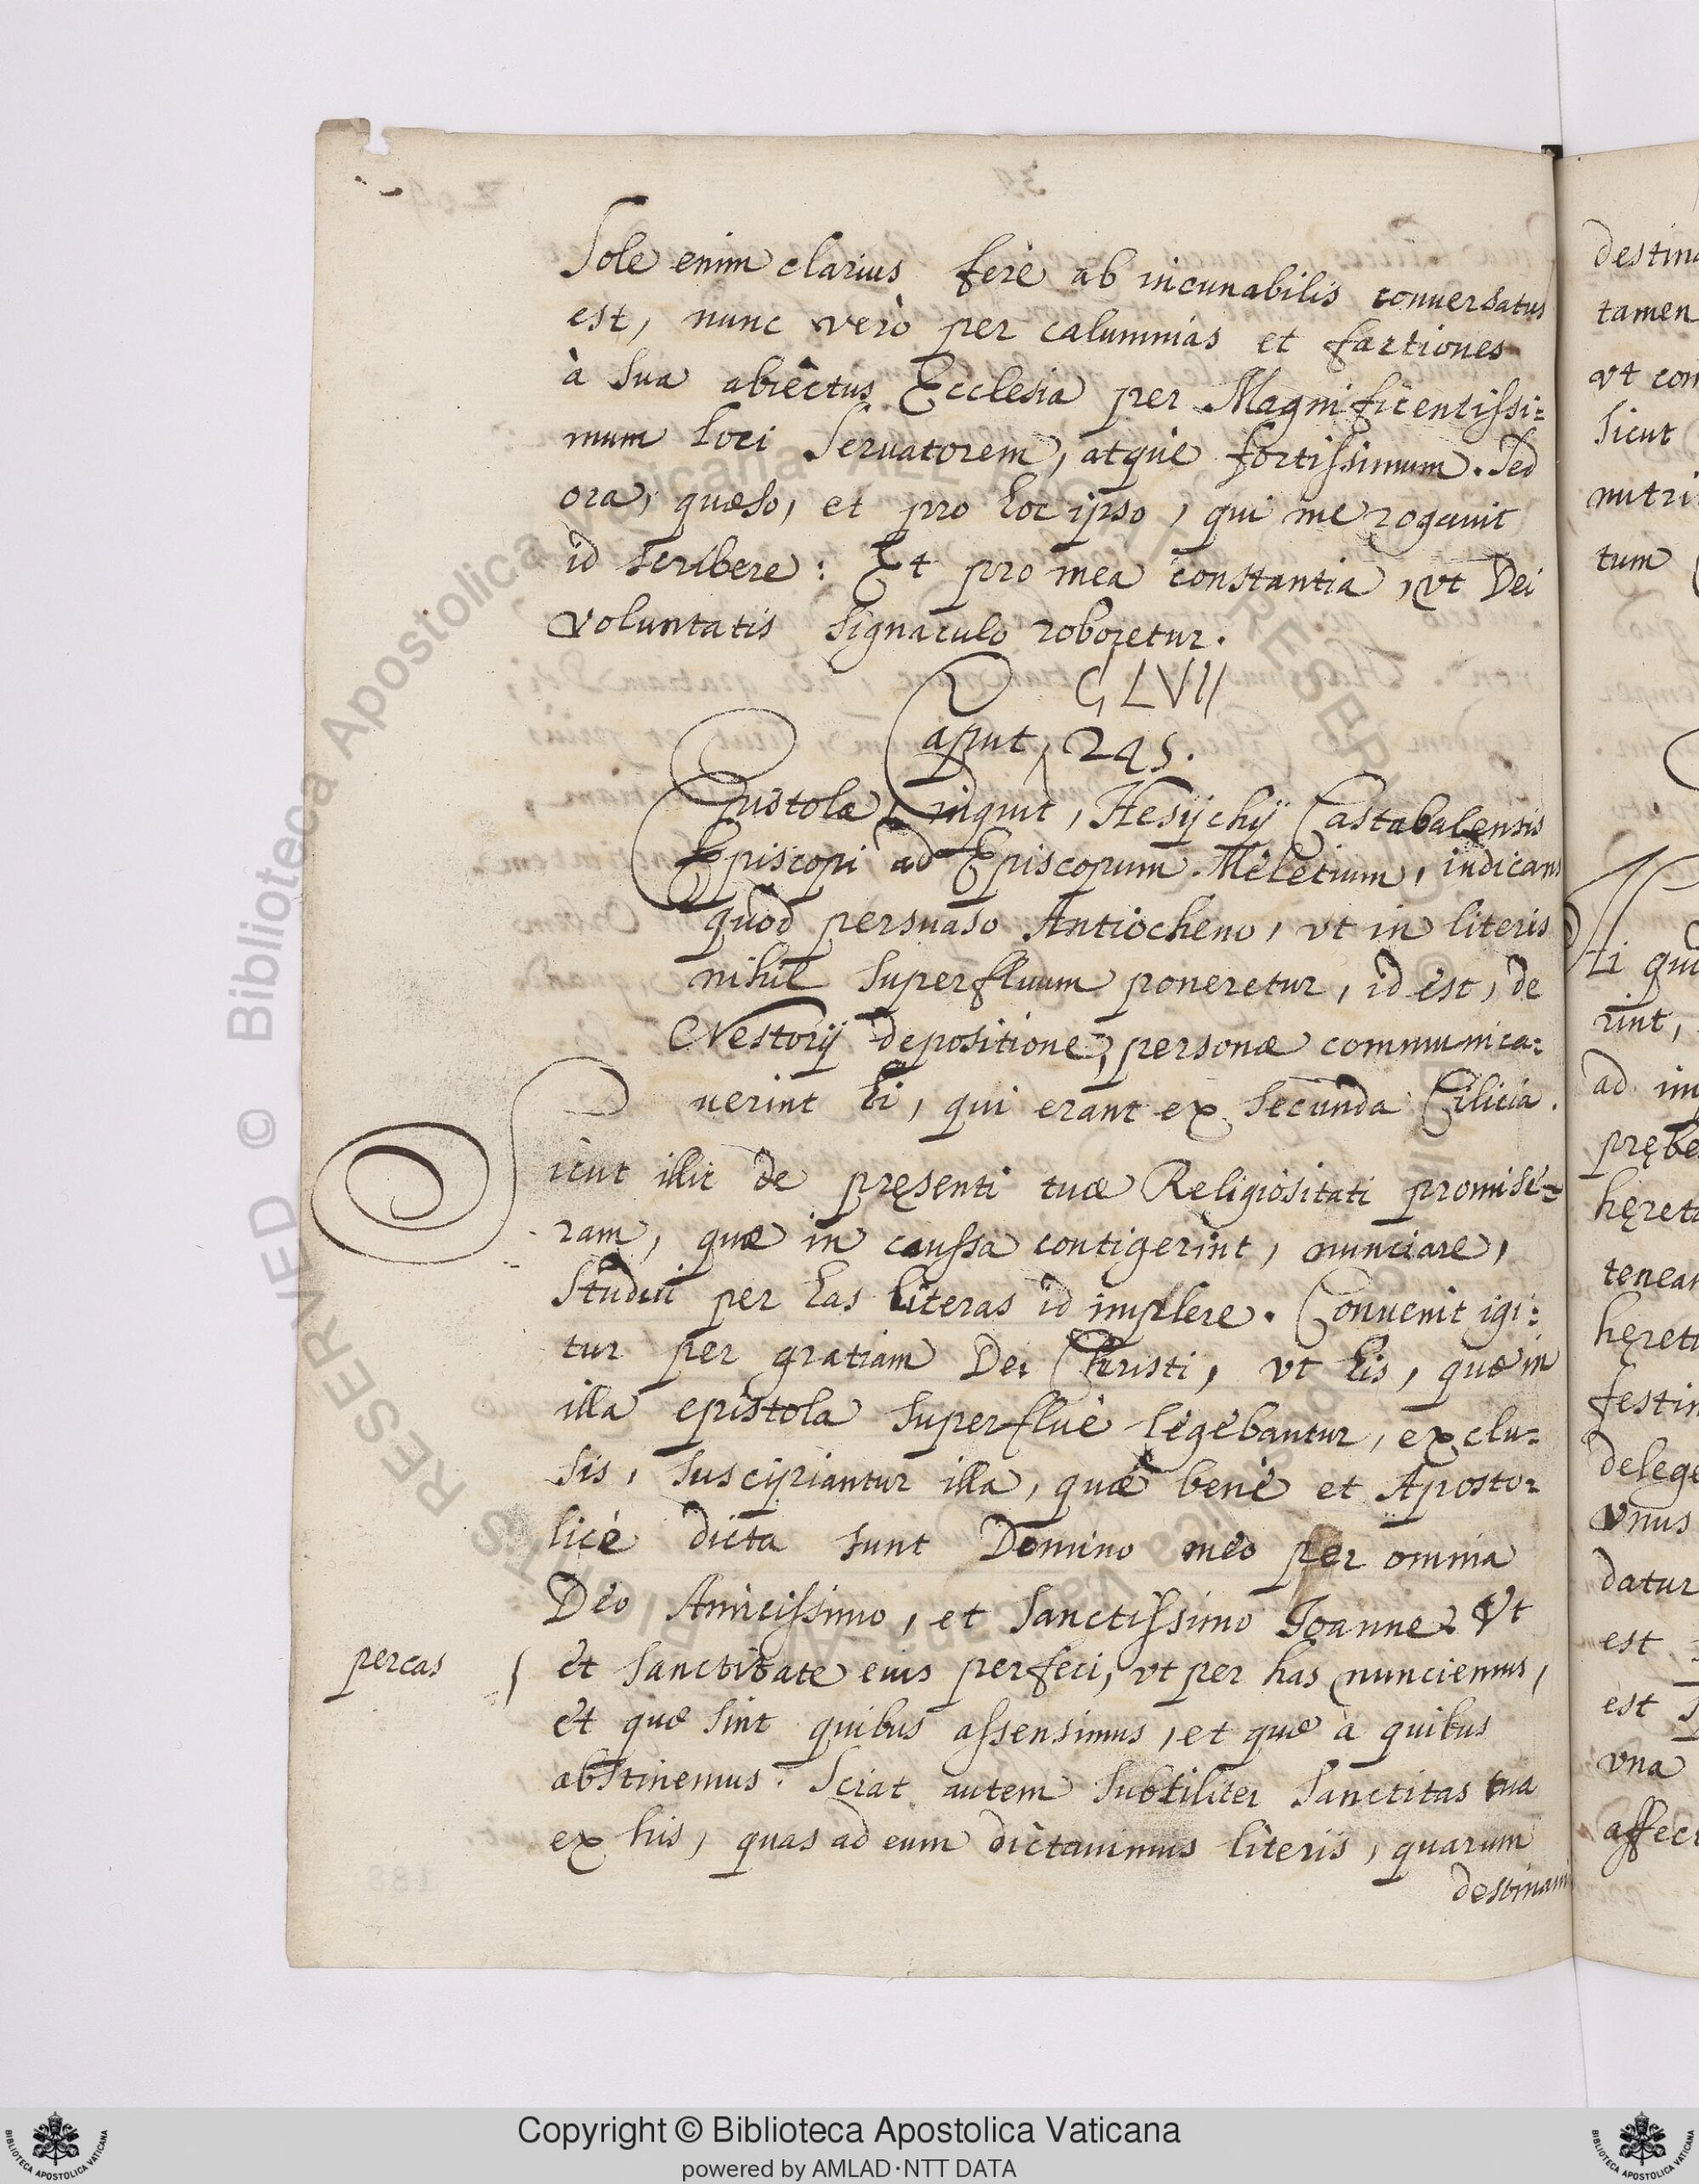 Sole enim clarius ferè ab incunabilis conuersatus
est, nunc verò per calumnias et factiones
à sua abiectus Ecclesia per Magnificentissi=
mum loci Seruatorem, atque fortissimum. Sed
ora, quæso, et pro hoc ipso, qui me rogauit
id scribere: Et pro mea constantia, vt Dei
voluntatis signaculo roboretur.
CLVII
Caput, 245.
Epistola, inquit, Hesychij Castabalensis
Episcopi ad Episcopum Meletium, indicans
quod persuaso Antiocheno, vt in literis
nihil superfluum poneretur, id est, de
Nestorij depositione, personæ communica=
uerint hi, qui erant ex secunda Cilicia.
Sicut illic de pręsenti tuæ Religiositati promise=
ram, quæ in caussa contigerint, nunciare,
studui per has literas id implere. Conuenit igi=
tur per gratiam Dei Christi, vt his, quæ in
illa epistola superfluè legebantur, exclu=
sis, suscipiantur illa, quæ benè et Aposto=
licè dicta sunt Domino meo per omnia
Deo Amicissimo, et Sanctissimo Joanne. Vt
percas
et sanctitate eius perfeci, vt per has nunciemus,
et quæ sint quibus assensimus, et quæ à quibus
abstinemus. Sciat autem subtiliter Sanctitas tua
ex his, quas ad eum dictauimus literis, quarum
destinaui
destina
tamen
vt con
sicut
nutri
tum
ti qui
rint,
ad im
prębe
hęret
tenean
hęreti
festin
delege
vnus
datur
est
est
vna
affect
RESERVED © Biblioteca Apostolica Vaticana
Copyright © Biblioteca Apostolica Vaticana
powered by AMLAD·NTT DATA
BIBLIOTECA APOSTOLICA VATICANA
BIBLIOTECA APOSTOLICA VATICANA